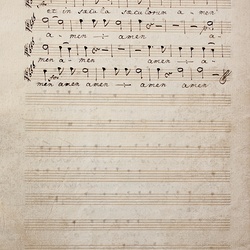 et in sæcula sæculorum amen
a- men -:- amen a-
men a- men amen a-
men amen amen -:- amen